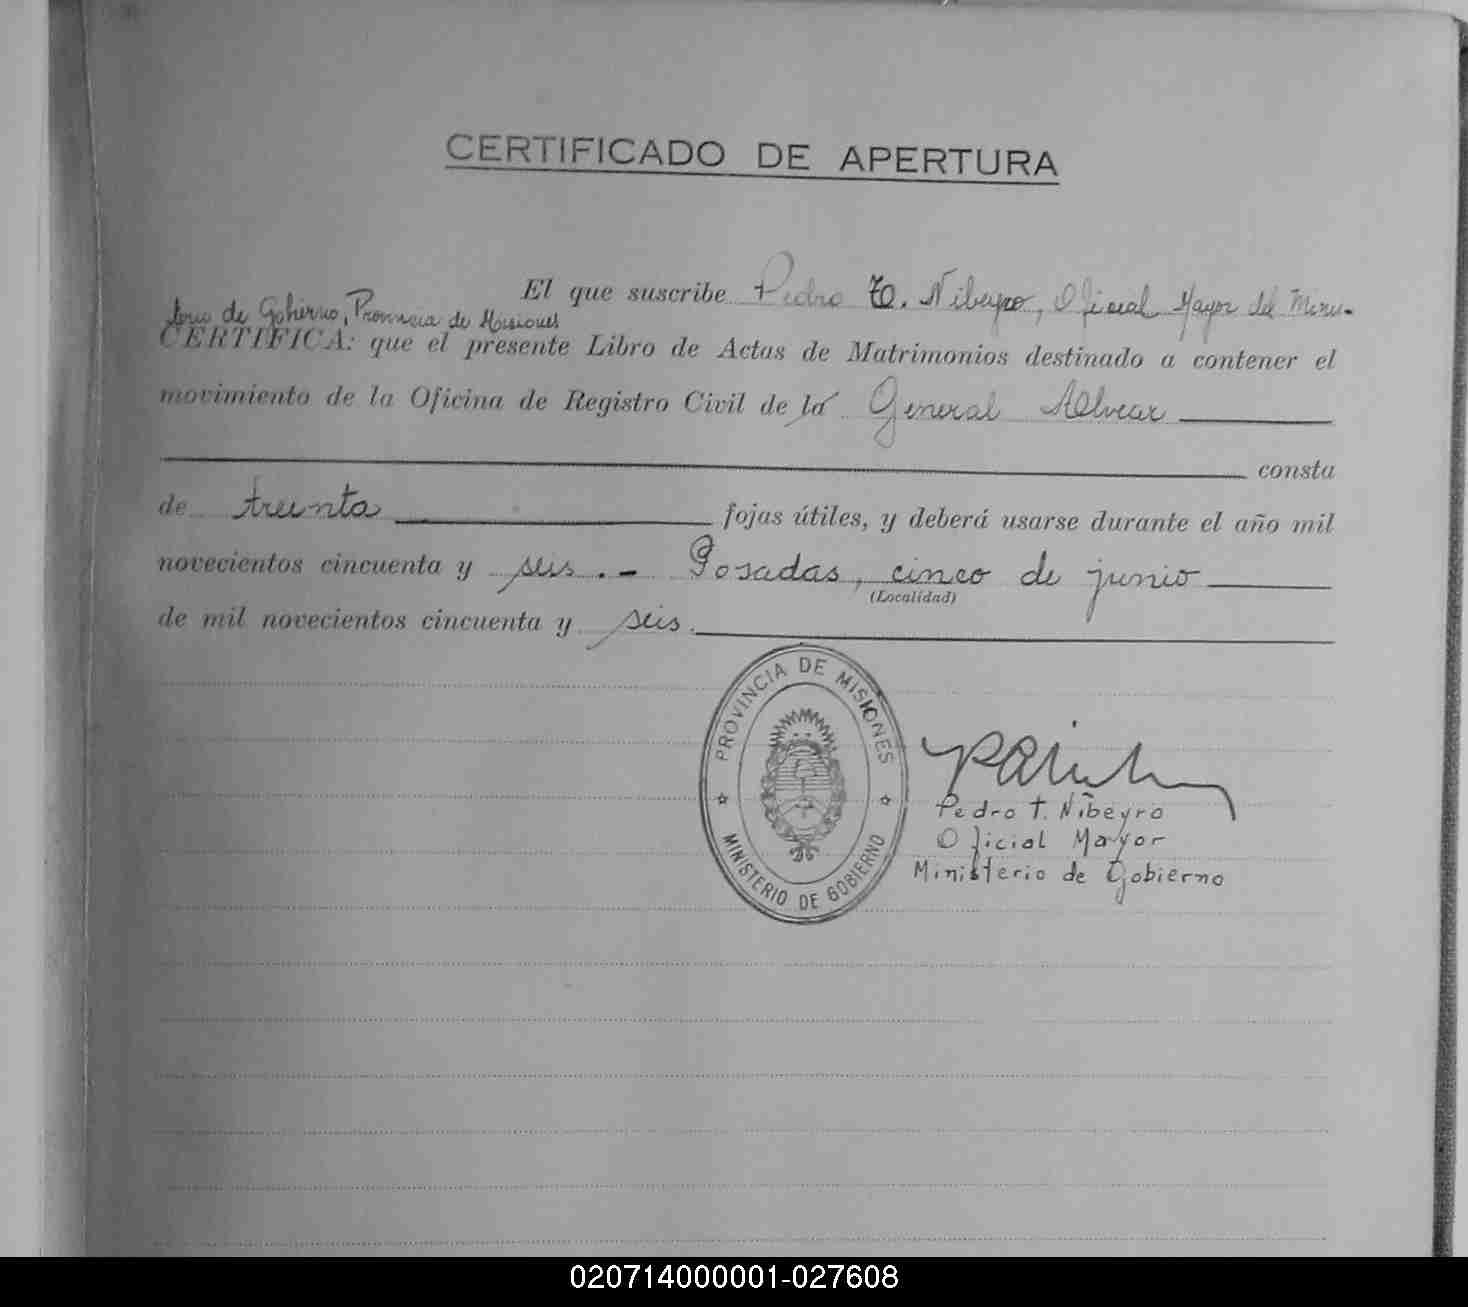 CERTIFICADO DE APERTURA
El que suscribe Pedro T. Nibeyro, Oficial Mayor del Minis-
terio de Gobierno, Provincia de Misiones
CERTIFICA: que el presente Libro de Actas de Matrimonios destinado a contener el
movimiento de la Oficina de Registro Civil de la General Alvear
consta
de treinta fojas útiles, y deberá usarse durante el año mil
novecientos cincuenta y seis.- Posadas, cinco de junio
(Localidad)
de mil novecientos cincuenta y seis.
PROVINCIA DE MISIONES
MINISTERIO DE GOBIERNO
Pedro T. Nibeyro
Oficial Mayor
Ministerio de Gobierno
020714000001-027608